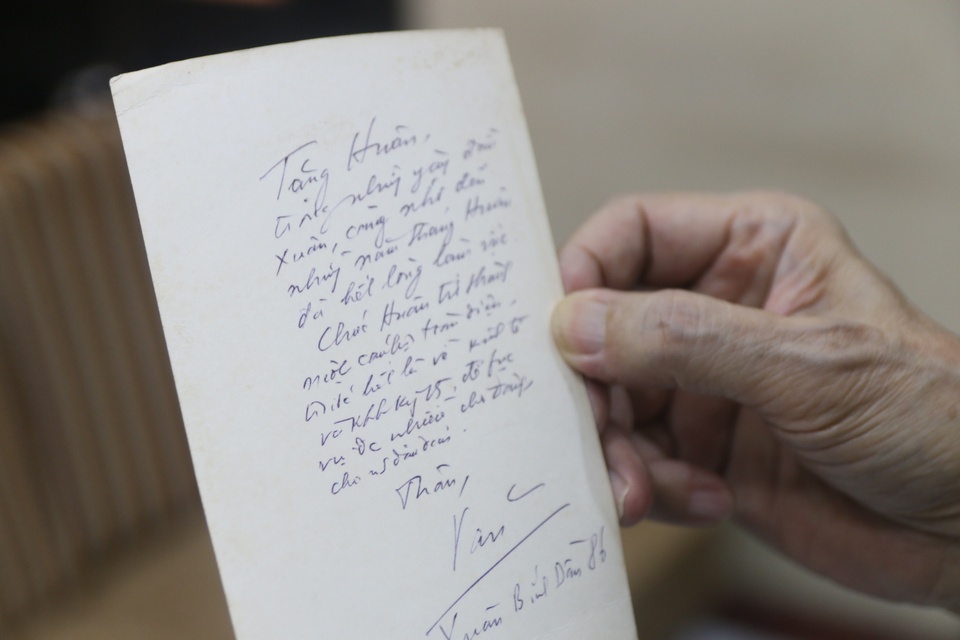 Tặng Huân,
trong những ngày đầu
Xuân, càng nhớ đến
những năm tháng Huân
đã hết lòng làm việc.
Chúc Huân trở thành
một cán bộ toàn diện,
trước hết là về kinh tế
và Khh Kỹ th, để phục
vụ đc nhiều cho Đảng,
cho nd
Thân,
Xuân Bính Dần 86